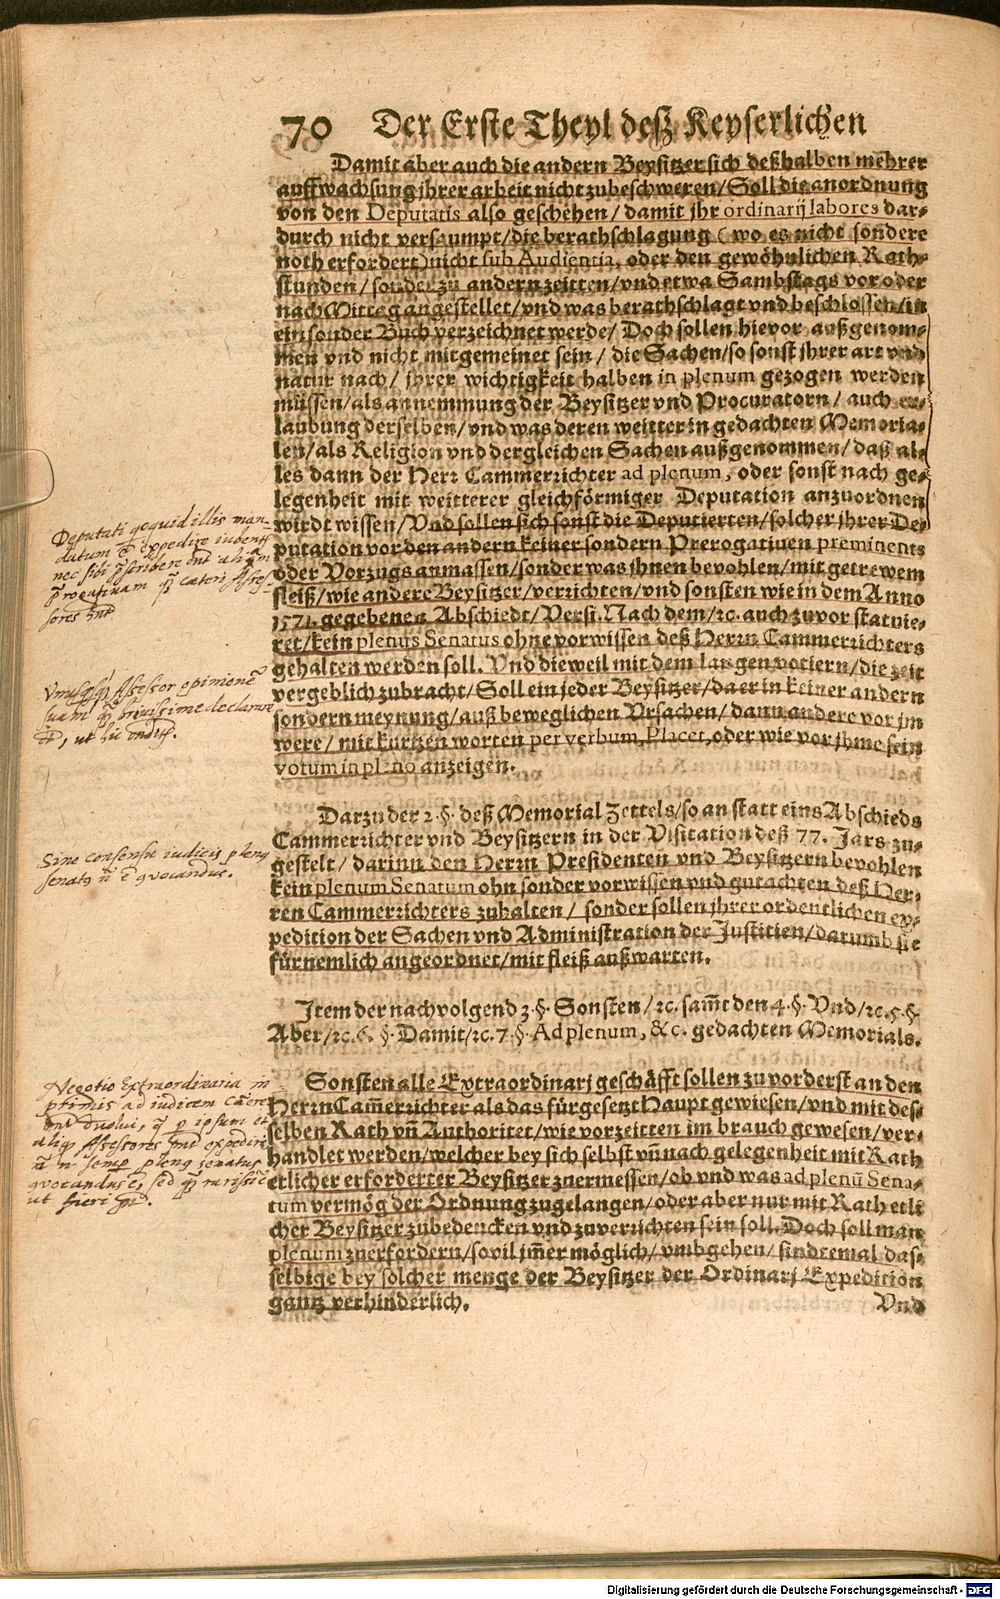 70 Der Erste Theyl deß Keyserlichen
Damit aber auch die andern Beysitzer sich deßhalben mehrer
auffwachsung jhrer arbeit nicht zubeschweren/ Soll die anordnung
von den Deputatis also geschehen/ damit jhr ordinarij labores dar-
durch nicht versaumpt/ die berathschlagung (wo es nicht sondere
noth erfordert) nicht sub Audientia, oder den gewöhnlichen Rath-
stunden/ sonder zu andern zeitten/ vnd etwa Sambstags vor oder
nach Mittag angestellet/ vnd was berathschlagt vnd beschlossen/ in
ein sonder Buch verzeichnet werde/ Doch sollen hievor außgenom-
men vnd nicht mitgemeinet sein/ die Sachen/ so sonst jhrer art vnd
natur nach/ jhrer wichtigkeit halben in plenum gezogen werden
müssen/ als annemmung der Beysitzer vnd Procuratorn/ auch er-
laubung derselben/ vnd was deren weitter in gedachten Memoria-
len/ als Religion vnd dergleichen Sachen außgenommen/ daß al-
les dann der Herr Cammerrichter ad plenum, oder sonst nach ge-
legenheit mit weitterer gleichförmiger Deputation anzuordnen
wirdt wissen/ Vnd sollen sich sonst die Deputierten/ solcher jhrer De-
putation vor den andern keiner sondern Prerogatiuen preminents
oder Vorzugs anmassen/ sonder was jhnen bevohlen/ mit getrewem
fleiß/ wie andere Beysitzer/ verrichten/ vnd sonsten wie in dem Anno
1571. gegebenen Abschiedt/ Versi. Nach dem/ rc. auch zuvor statuie-
ret/ kein plenus Senatus ohne vorwissen deß Herrn Cammerrichters
gehalten werden soll. Vnd dieweil mit dem langen votiern/ die zeit
vergeblich zubracht/ Soll ein jeder Beysitzer/ da er in keiner andern
sondern meynung/ auß beweglichen Vrsachen/ dann andere vor jm
were/ mit kurtzen worten per verbum, Placet, oder wie vor jhme sein
votum in pleno anzeigen.
Darzu der 2. §. deß Memorial Zettels/ so an statt eins Abschieds
Cammerrichter vnd Beysitzern in der Visitation deß 77. Jars zu-
gestelt/ darinn den Herrn Presidenten vnd Beysitzern bevohlen
kein plenum Senatum ohn sonder vorwissen vnd gutachten deß Her-
ren Cammerrichters zuhalten/ sonder sollen jhrer ordentlichen ex-
pedition der Sachen vnd Administration der Justitien/ darumb sie
fürnemlich angeordnet/ mit fleiß außwarten.
Item der nachvolgend 3. §. Sonsten/ rc. sam̃t den 4. §. Vnd/ rc. 5. §.
Aber/ rc. 6. §. Damit/ rc. 7. §. Ad plenum, &c. gedachten Memorials.
Sonsten alle Extraordinarj geschäfft sollen zuvorderst an den
Herrn Cam̃errichter als das fürgesetzt Haupt gewiesen/ vnd mit des-
selben Rath vn̄ Authoritet/ wie vorzeitten im brauch gewesen/ ver-
handlet werden/ welcher bey sich selbst vn̄ nach gelegenheit mit Rath
etlicher erforderter Beysitzer zuermessen/ ob vnd was ad plenū Sena-
tum vermög der Ordnung zugelangen/ oder aber nur mit Rath etli
cher Beysitzer zubedencken vnd zuverrichten sein soll. Doch soll man
plenum zuerfordern/ sovil jm̃er möglich/ vmbgehen/ sindtemal das-
selbige bey solcher menge der Beysitzer der Ordinarj Expedition
gantz verhinderlich. Vnd
Deputati quidquid illis man-
Assessor opinionē
suam brevissime declarare
Sine consensu iudicis plenus
senatus
Negotia Extraordinaria in
primis ad iudicem
Assessores
plenus senatus
ut fieri
Digitalisierung gefördert durch die Deutsche Forschungsgemeinschaft - DFG